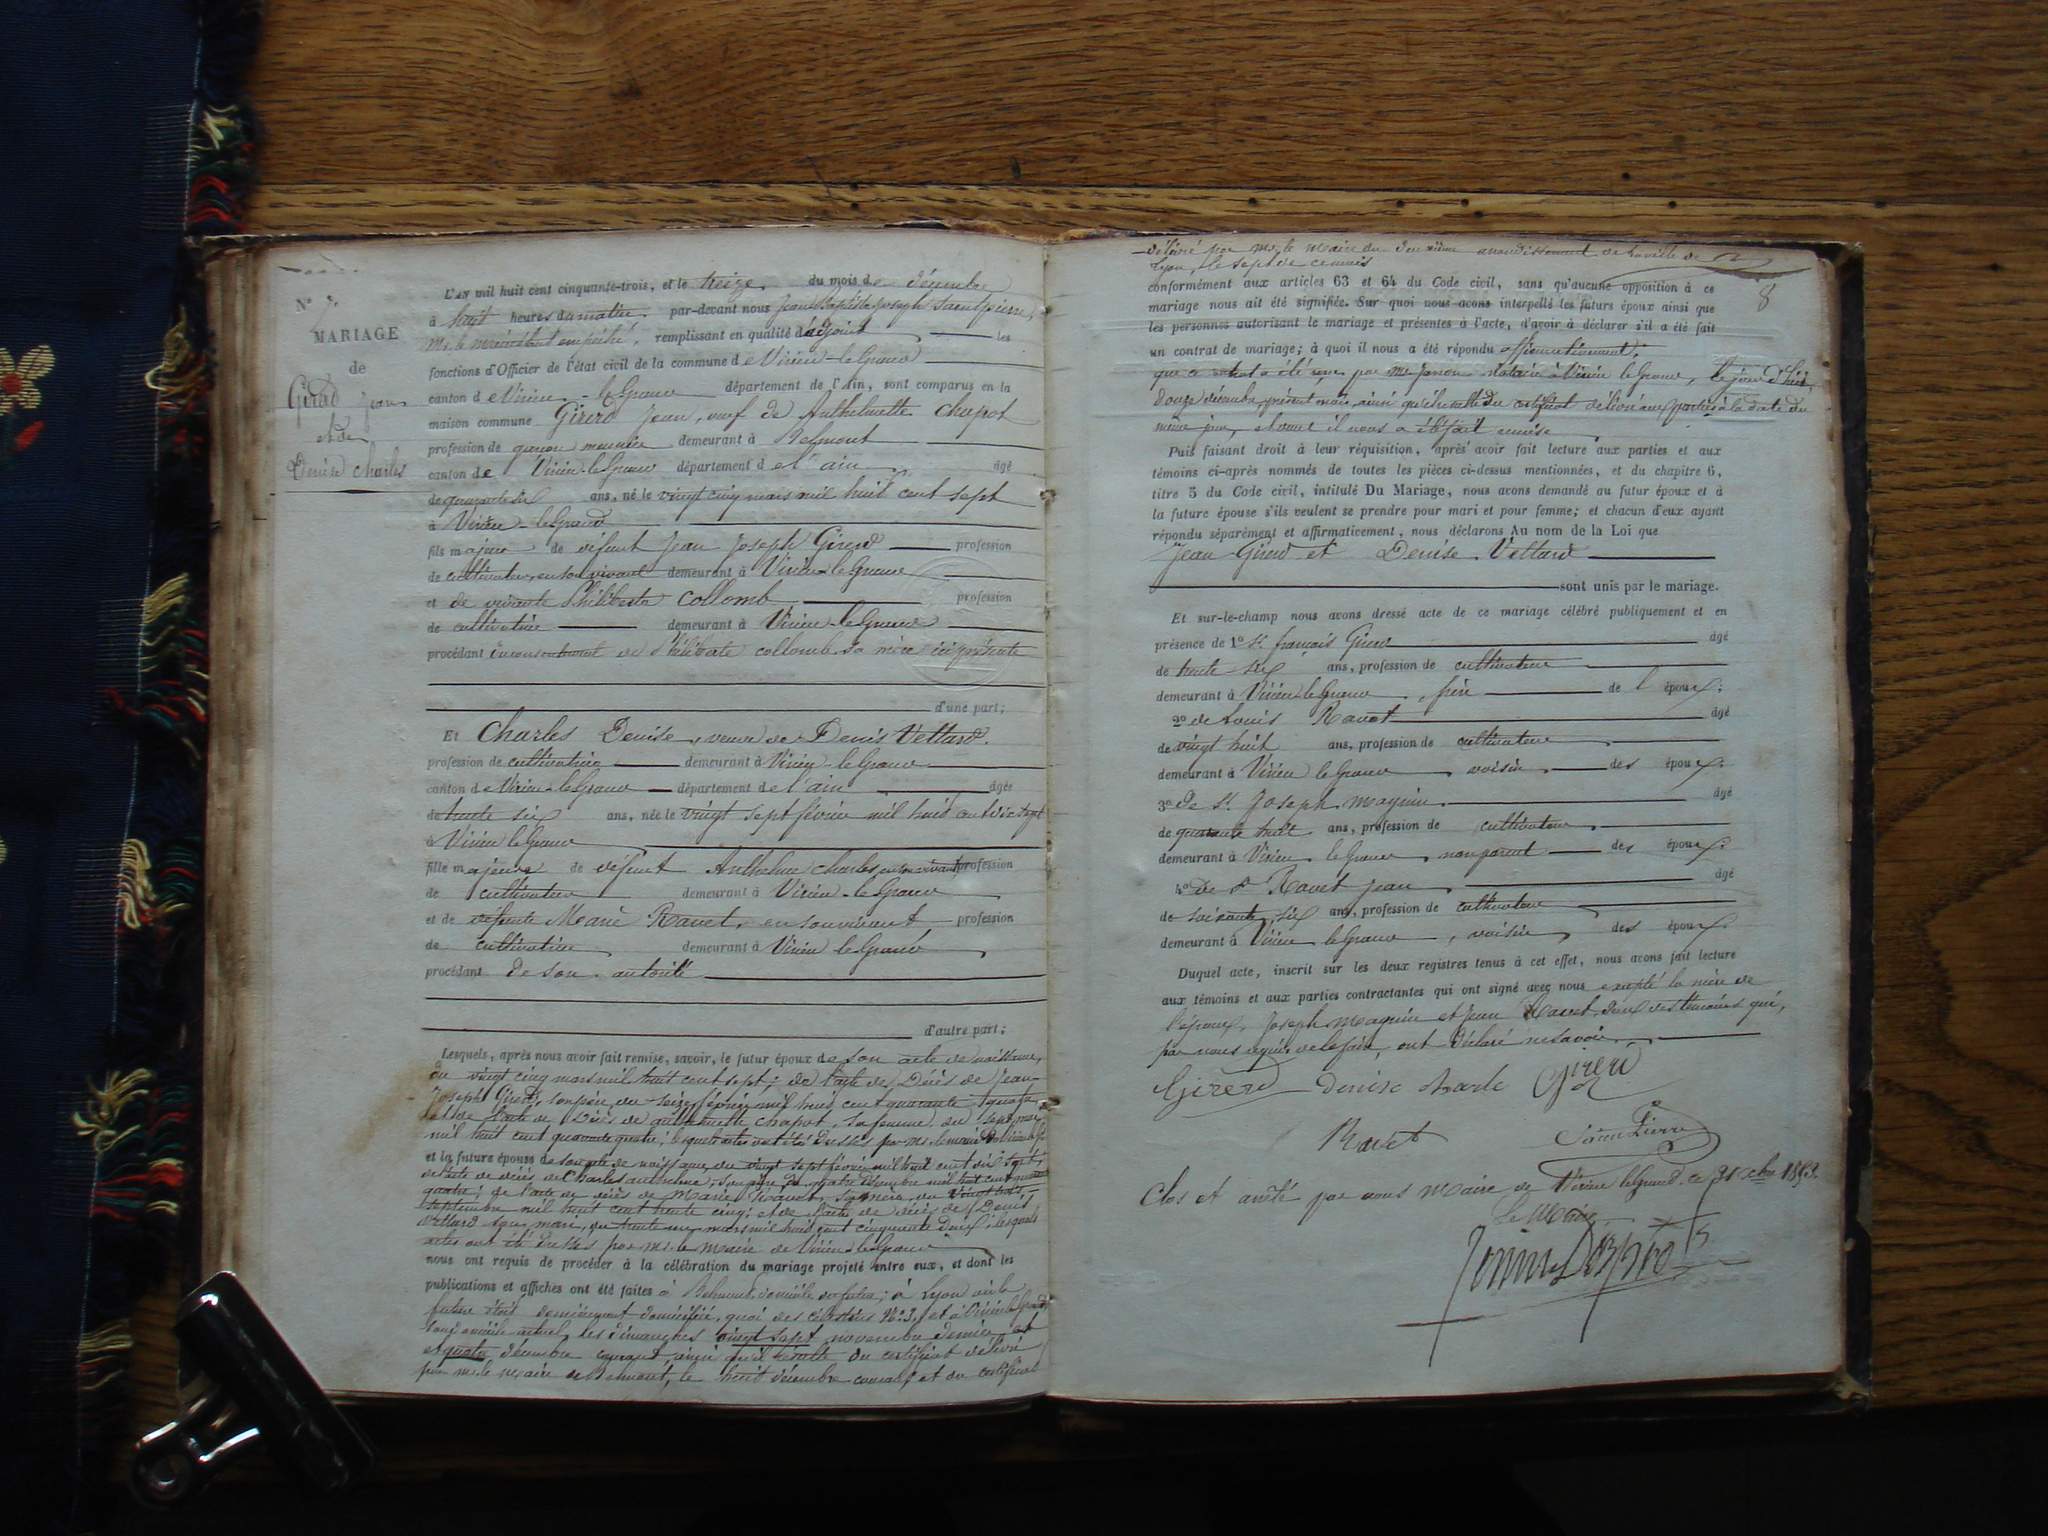 N° 7.
MARIAGE
de
Girerd Jean
et de
Denise Charles
L'AN mil huit cent cinquante-trois, et le treize du mois de décembre
à huit heures du matin par-devant nous Jean Baptiste Joseph Saint pierre,
Mr. le maire étant empêché, remplissant en qualité d'adjoint les
fonctions d'Officier de l'état civil de la commune de Virieu-le-Grand
canton de Virieu-le-Grand département de l'Ain, sont comparus en la
maison commune Girerd Jean, veuf de Anthelmette Chapot
profession de garçon meunier demeurant à Belmont
canton de Virieu-le-Grand département de l'ain âgé
de quarante six ans, né le vingt cinq mars mil huit cent sept
à Virieu-le-Grand
fils majeur de défunt Jean Joseph Girerd profession
de cultivateur, en son vivant demeurant à Virieu-le-Grand
et de vivante Philiberte Collomb profession
de cultivatrice demeurant à Virieu-le-Grand
procédant du consentement de Philiberte Collomb sa mère ici présente
d'une part;
Et Charles Denise, veuve de Denis Vettard.
profession de cultivatrice demeurant à Virieu-le-Grand
canton de Virieu-le-Grand département de l'ain âgée
de trente six ans, née le vingt sept février mil huit cent dix sept
à Virieu le Grand
fille majeure de défunt Anthelme Charles en son vivant profession
de cultivateur demeurant à Virieu-le-Grand
et de défunte Marie Ravet, en son vivant profession
de cultivatrice demeurant à Virieu le Grand
procédant de son autorité
d'autre part;
Lesquels, après nous avoir fait remise, savoir, le futur époux de son acte de naissance,
du vingt cinq mars mil huit cent sept; de l'acte de décès de Jean
Joseph Girerd, son père, du seize février mil huit cent quarante quatre
et de l'acte de décès de Anthelmette Chapot, sa femme, du sept mai
mil huit cent quarante quatre; lesquels actes ont été dressés par Mr. le maire de Virieu le Gd
et la future épouse de son acte de naissance, du vingt sept février mil huit cent dix sept;
de l'acte de décès de Charles anthelme, son père, du quatre décembre mil huit cent quarante
quatre; de l'acte de décès de Marie Ravet, sa mère, du vingt trois
septembre mil huit cent trente cinq; et de l'acte de décès de Denis
Vettard son mari, du trente un mars mil huit cent cinquante deux; lesquels
actes ont été dressés par Mr. le Maire de Virieu-le-Grand
nous ont requis de procéder à la célébration du mariage projeté entre eux, et dont les
publications et affiches ont été faites à Belmont, domicile du futur; à Lyon où la
future était dernièrement domiciliée, quai des célestins No. 3, et à Virieu le Grand
son domicile actuel, les dimanches vingt sept novembre dernier et
et quatre décembre courant, ainsi qu'il résulte du certificat délivré
par Mr. le maire de Belmont, le huit décembre courant, et du certificat
délivré par Mr. le Maire du deuxième arrondissement de la ville de
Lyon, le sept de ce mois
8
conformément aux articles 63 et 64 du Code civil, sans qu'aucune opposition à ce
mariage nous ait été signifiée. Sur quoi nous avons interpellé les futurs époux ainsi que
les personnes autorisant le mariage et présentes à l'acte, d'avoir à déclarer s'il a été fait
un contrat de mariage; à quoi il nous a été répondu affirmativement;
que ce contrat a été reçu par Me Janon notaire à Virieu le Grand, le jour d'hier,
douze décembre, présent mois, ainsi qu'il résulte du certificat délivré aux parties à la date du
même jour, et dont il nous a été fait remise
Puis faisant droit à leur réquisition, après avoir fait lecture aux parties et aux
témoins ci-après nommés de toutes les pièces ci-dessus mentionnées, et du chapitre 6,
titre 5 du Code civil, intitulé Du Mariage, nous avons demandé au futur époux et à
la future épouse s'ils veulent se prendre pour mari et pour femme; et chacun d'eux ayant
répondu séparément et affirmaticement, nous déclarons Au nom de la Loi que
Jean Girerd et Denise Vettard
sont unis par le mariage.
Et sur-le-champ nous avons dressé acte de ce mariage célébré publiquement et en
présence de 1° Sr. françois Girerd âgé
de trente six ans, profession de cultivateur
demeurant à Virieu le Grand, frère de l'époux;
2° de Louis Ravet âgé
de vingt huit ans, profession de cultivateur
demeurant à Virieu le Grand, voisin des époux;
3° de Sr. Joseph Magnin âgé
de quarante huit ans, profession de cultivateur
demeurant à Virieu le Grand, non parent des époux;
4° de Sr Ravet Jean âgé
de soixante six ans, profession de cultivateur
demeurant à Virieu le Grand, voisin des époux.
Duquel acte, inscrit sur les deux registres tenus à cet effet, nous avons fait lecture
aux témoins et aux parties contractantes qui ont signé avec nous excepté la mère de
l'époux, Joseph Magnin et Jean Ravet, deux des témoins qui,
par nous requis de le faire, ont déclaré ne savoir.
Girerd denise charle Girerd
Ravet Saint Pierre
Clos et arrêté par nous Maire de Virieu le Grand ce 31 Xbre 1853.
Le Maire